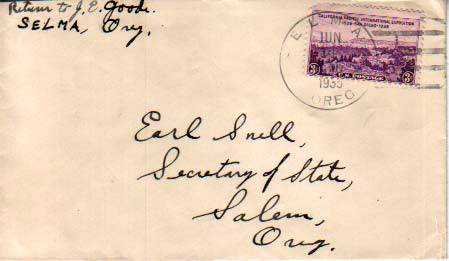 Return to J. E. Goode.
SELMA, Org.
CALIFORNIA PACIFIC INTERNATIONAL EXPOSITION
1935-SAN DIEGO-1936
3¢ U.S. POSTAGE 3¢
JUN
1935
OREG
Earl Snell,
Secretary of State,
Salem,
Oreg.